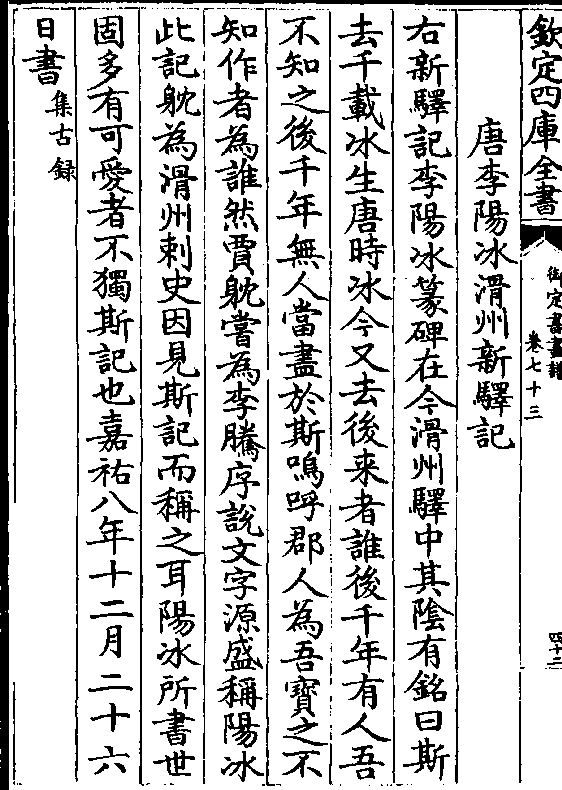 欽定四庫全書
御定書畫譜
卷七十三
四十二
唐李陽冰滑州新驛記
右新驛記李陽冰篆碑在今滑州驛中其陰有銘曰斯
去千載冰生唐時冰今又去後来者誰後千年有人吾
不知之後千年無人當盡於斯嗚呼郡人為吾寶之不
知作者為誰然賈躭嘗為李騰序說文字源盛稱陽冰
此記躭為滑州刺史因見斯記而稱之耳陽冰所書世
固多有可愛者不獨斯記也嘉祐八年十二月二十六
日書集古録